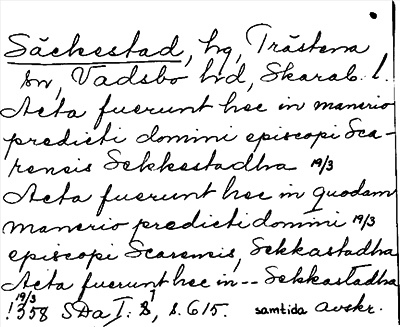 Säckestad, hg, Trästena
sn, Vadsbo hd, Skarab. l.
Acta fuerunt hec in manerio
predicti domini episcopi Sca-
rensis Sekkestadha 19/3
Acta fuerunt hec in quodam
manerio predicti domini 19/3
episcopi Scarensis, Sekkastadha
Acta fuerunt hec in -- Sekkastadha
19/3
1358 SDa I: 8, s. 615. samtida avskr.